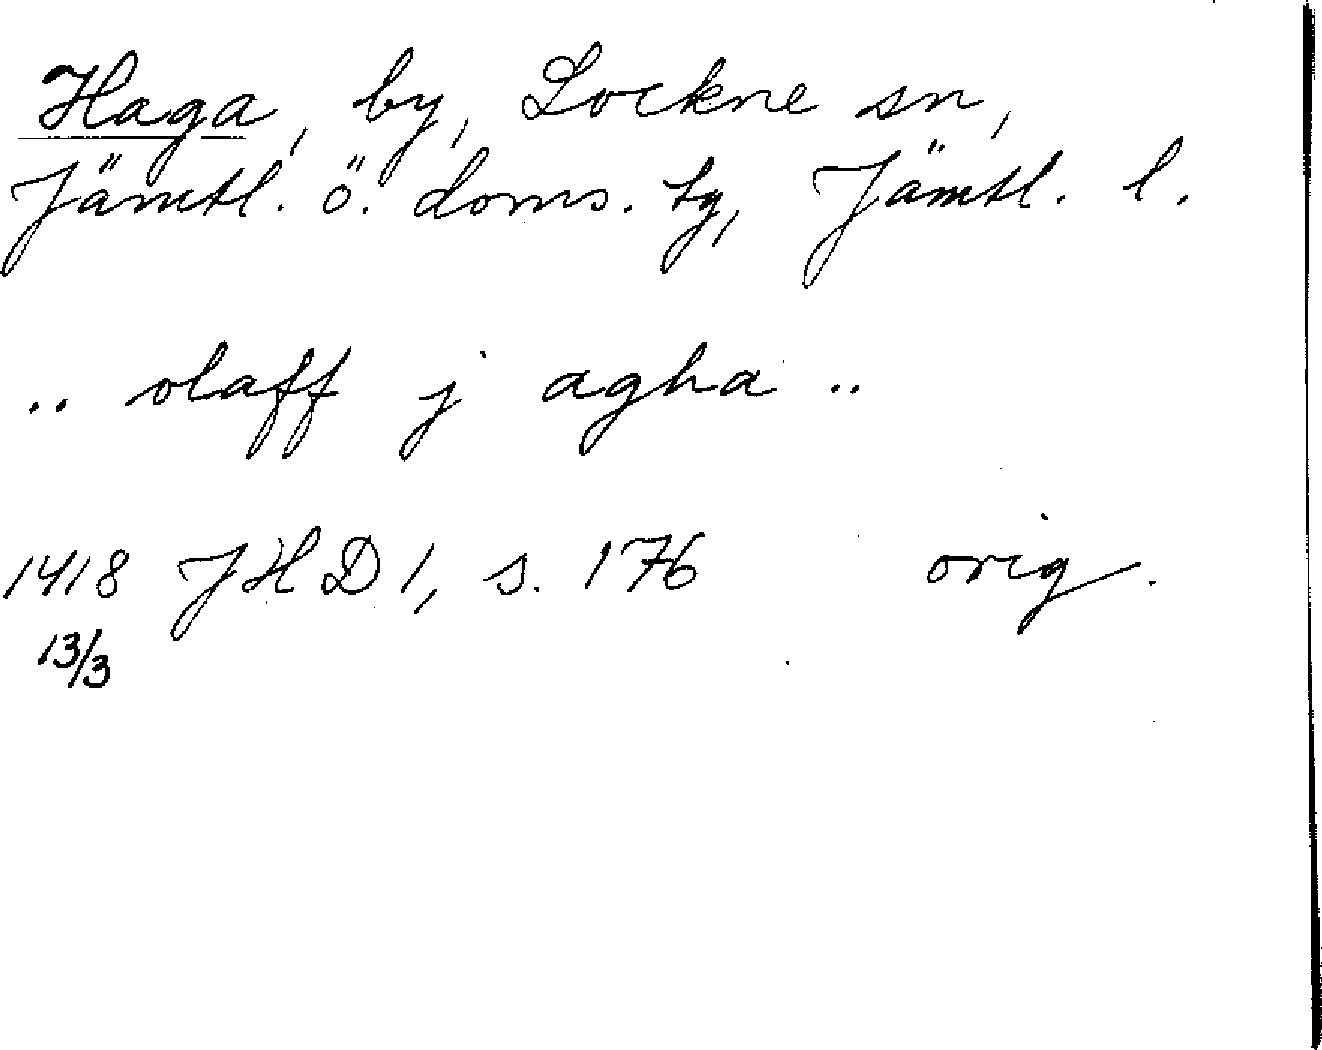 Haga, by, Lockne sn,
Jämtl. ö. doms. tg, Jämtl. l.
.. olaff j agha ..
1418 JHD 1, s. 176 orig.
13/3